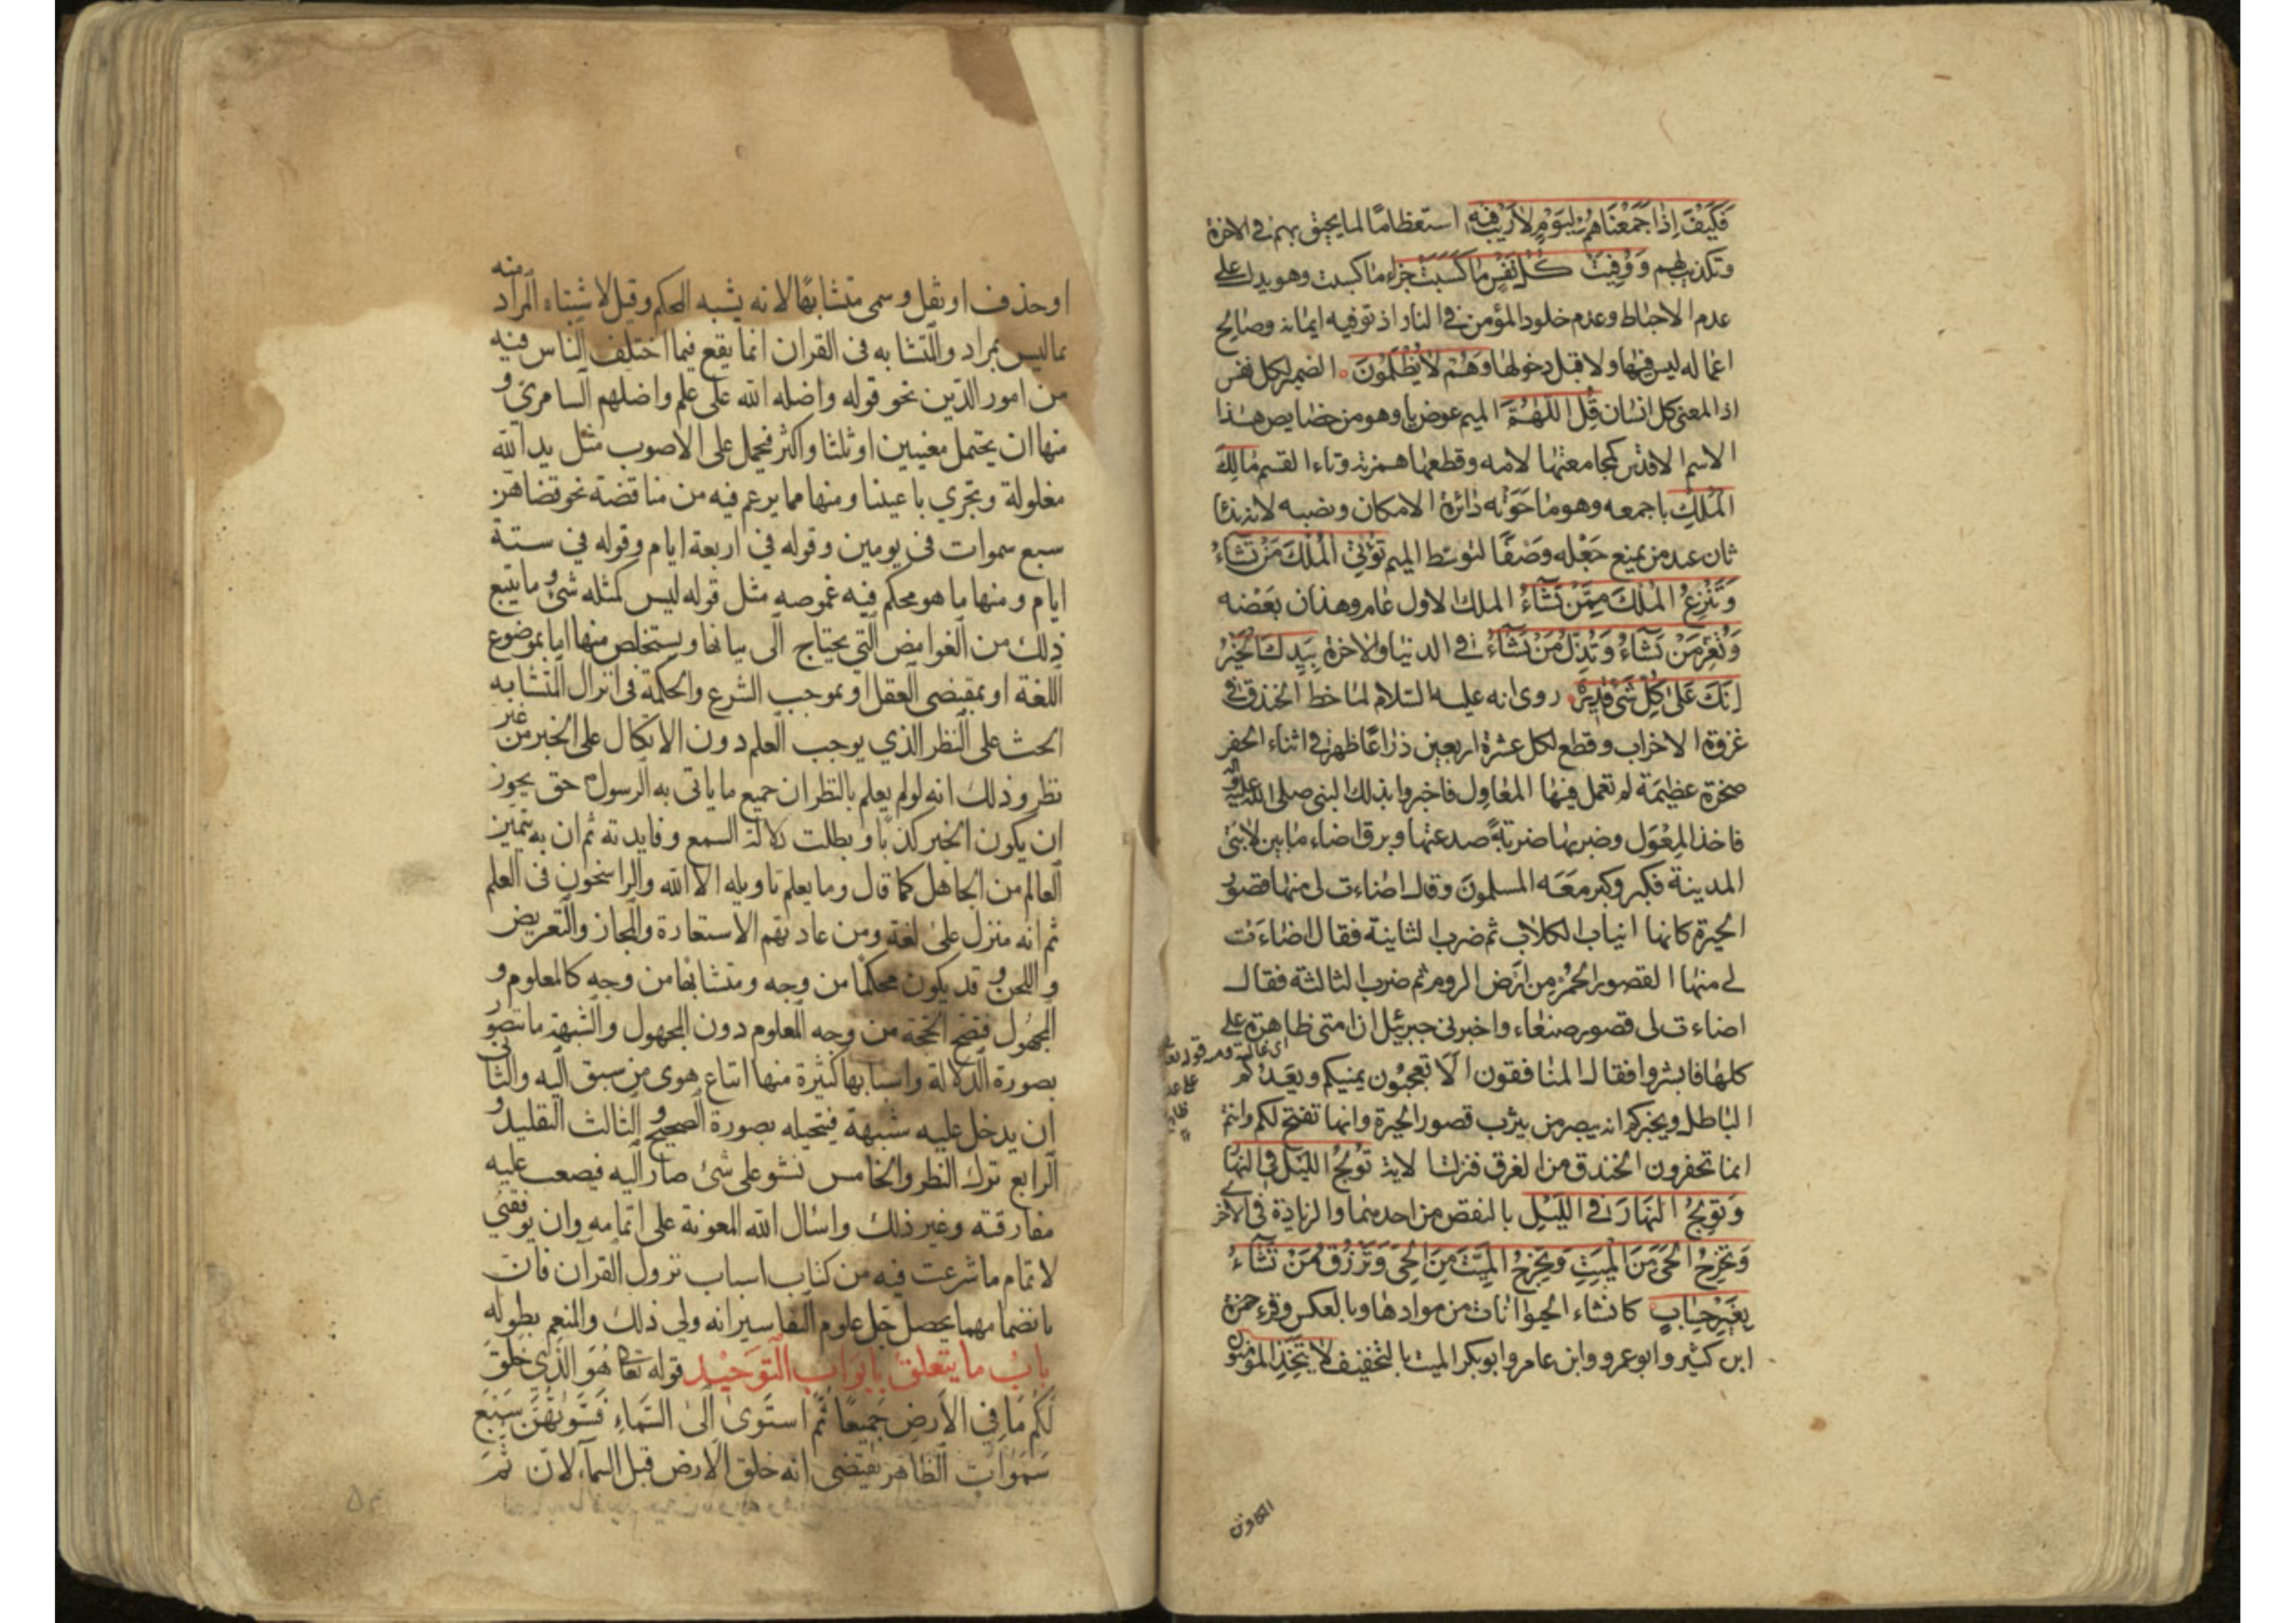 فَكَيْفَ إِذَا جَمَعْنَاهُمْ لِيَوْمٍ لَا رَيْبَ فِيهِ استعظاما لما يحيق بهم في الاخرة
وتكذيب لهم وَوُفِّيَتْ كُلُّ نَفْسٍ مَا كَسَبَتْ جزاء ما كسبت وهو يدل على
عدم الاحباط وعدم خلود المؤمن في النار اذ توفيه ايمانه وصالح
اعماله ليس فيها ولا قبل دخولها وَهُمْ لَا يُظْلَمُونَ الضمير لكل نفس
اذ المعنى كل انسان قُلِ اللَّهُمَّ الميم عوض يا وهو من خصايص هذا
الاسم الاقدس كمجامعتها لامه وقطعها همزته وتاء القسم مَالِكَ
الْمُلْكِ باجمعه وهو ما حَوَتْه دائرة الامكان ونصبه لانه ندا
ثان عند من يمنع جَعْله وصْفًا لتوسّط الميم تُؤْتِي الْمُلْكَ مَنْ تَشَاءُ
وَتَنْزِعُ الْمُلْكَ مِمَّنْ تَشَاءُ الملك الاول عام وهذان بَعْضه
وَتُعِزُّ مَنْ تَشَاءُ وَتُذِلُّ مَنْ تَشَاءُ في الدنيا والاخرة بِيَدِكَ الْخَيْرُ
إِنَّكَ عَلَى كُلِّ شَيْءٍ قَدِيرٌ روى انه عليه السلام لما خط الخندق في
غزوة الاحزاب وقطع لكل عشرة اربعين ذراعًا ظهر في اثناء الحفر
صخرة عظيمَة لم تعمل فيها المعَاول فاخبروا بذلك النبي صلى الله عليه واله
فاخذ المِعْوَل وضربها ضربةً صدعتها وبرق اضاء ما بين لابتى
المدينة فكبر وكبر معَه المسلمونَ وقال اضاءت لى منها قصور
الحيرة كانها انياب الكلاب ثم ضرب الثانية فقال اضاءَت
لي منها القصور الحُمْر مِن ارض الروم ثم ضرب الثالثة فقال
اضاءت لى قصور صنعاء واخبرنى جبرئيل ان امتى ظاهرة على
كلها فابشروا فقال المنافقون الَا تعجبُون يمنيكم ويعَدكم
الباطل ويخبركم انه يبصر من يثرب قصور الحيرة وانها تفتح لكم وانتم
انما تحفرون الخندق من الفرق فنزلت الاية تُولِجُ اللَّيْلَ فِي النَّهَارِ
وَتُولِجُ النَّهَارَ فِي اللَّيْلِ بالنقص من احدهما والزيادة في الاخر
وَتُخْرِجُ الْحَيَّ مِنَ الْمَيِّتِ وَتُخْرِجُ الْمَيِّتَ مِنَ الْحَيِّ وَتَرْزُقُ مَنْ تَشَاءُ
بِغَيْرِ حِسَابٍ كانشاء الحيوانات من موادها وبالعكس وقرء حمزة
ابن كثير وابو عمرو وابن عامر وابو بكر الميت بالتخفيف لَا يَتَّخِذِ الْمُؤْمِنُونَ
الكافرين
او حذف او نقل وسمى متشابهًا لانه يشبه المحكم وقيل لاشتباه المراد منه
بما ليس بمراد والتشابه فى القران انما يقع فيما اختلف الناس فيه
من امور الدين نحو قوله واضله الله على علم واضلهم السامري و
منها ان يحتمل معنيين او ثلثا واكثر فيحمل على الاصوب مثل يد الله
مغلولة وتجري باعيننا ومنها مما يزعم فيه من مناقضة نحو قضاهن
سبع سموات فى يومين وقوله في اربعة ايام وقوله في ستة
ايام ومنها ما هو محكم فيه غموضه مثل قوله ليس كمثله شئ وما يتبع
ذلك من الغوامض التي يحتاج الى بيانها ويستخلص منها اما بموضوع
اللغة او بمقتضى العقل او بموجب الشرع والحكمة فى انزال المتشابه
الحث على النظر الذي يوجب العلم دون الاتكال على الخبر من غير
نظر وذلك انه لو لم يعلم بالنظر ان جميع ما ياتى به الرسول حق يجوز
ان يكون الخبر كذبًا وبطلت دلالة السمع وفايدته ثم ان به يتميز
العالم من الجاهل كما قال وما يعلم تاويله الا الله والراسخون فى العلم
ثم انه منزل على لغة ومن عادتهم الاستعارة والمجاز والتعريض
واللحن وقد يكون محكمًا من وجه ومتشابهًا من وجه كالمعلوم و
المجهول فتصح الحجة من وجه المعلوم دون المجهول والشبهة ما تتصور
بصورة الدلالة واسبابها كثيرة منها اتباع هوى من سبق اليه والثانى
ان يدخل عليه شبهة فيتخيله بصورة الصحيح والثالث التقليد و
الرابع ترك النظر والخامس نشو على شئ صار اليه فيصعب عليه
مفارقته وغير ذلك واسال الله المعونة على اتمامه وان يوفقني
لاتمام ما شرعت فيه من كتاب اسباب نزول القرآن فان
بانضمامهما يحصل جل علوم التفاسير انه ولي ذلك والمنعم بطوله
باب ما يتعلق بابواب التوحيد قوله تعالى هُوَ الَّذِي خَلَقَ
لَكُمْ مَا فِي الْأَرْضِ جَمِيعًا ثُمَّ اسْتَوَى إِلَى السَّمَاءِ فَسَوَّاهُنَّ سَبْعَ
سَمَوَاتٍ الظاهر يقتضى انه خلق الارض قبل السمآء لان ثُمَّ